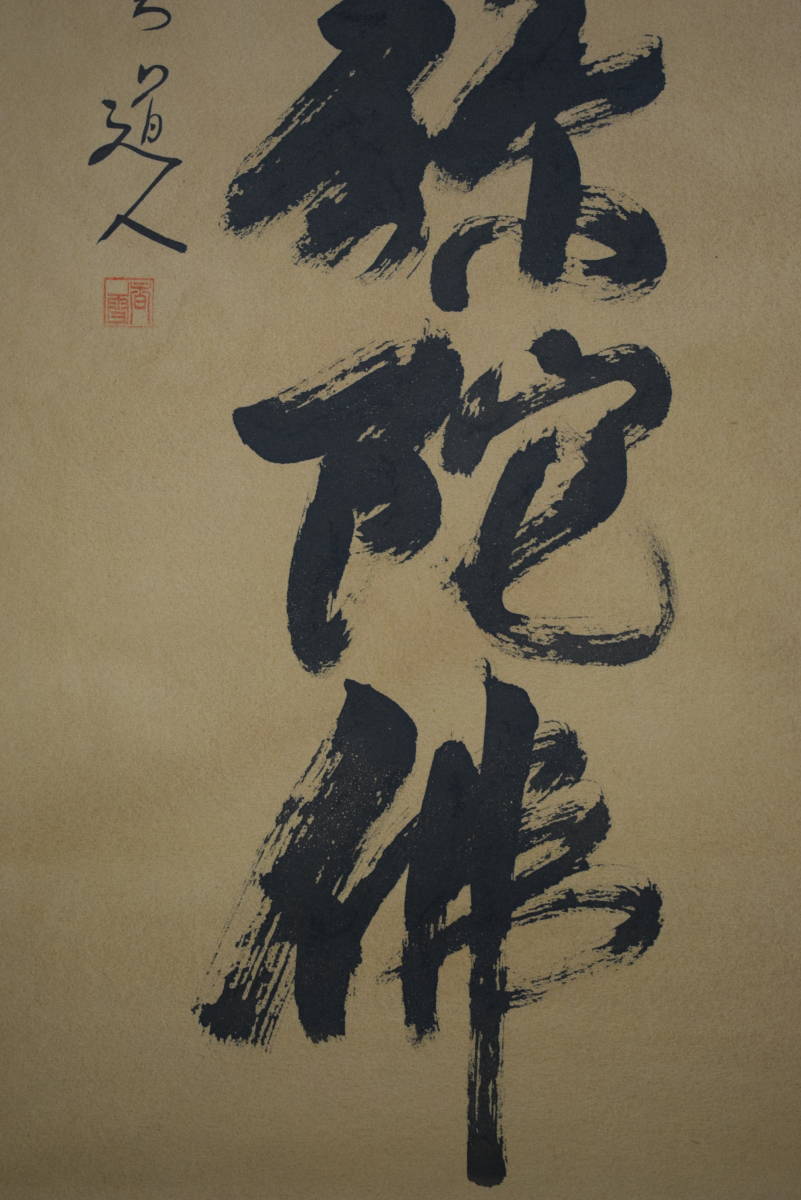 弥陀佛
道人